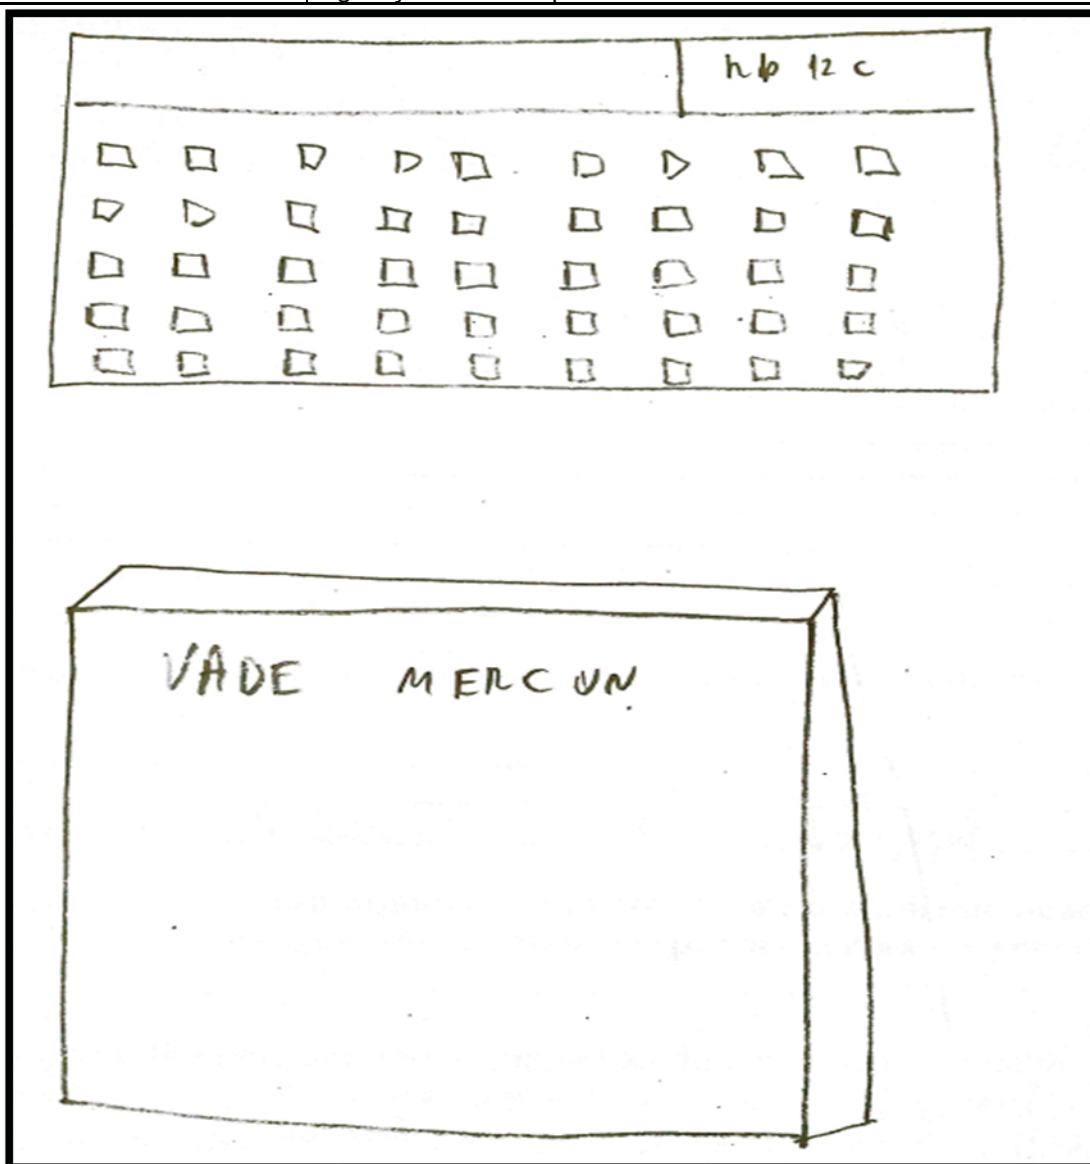 hp 12 c
VADE MERCUN